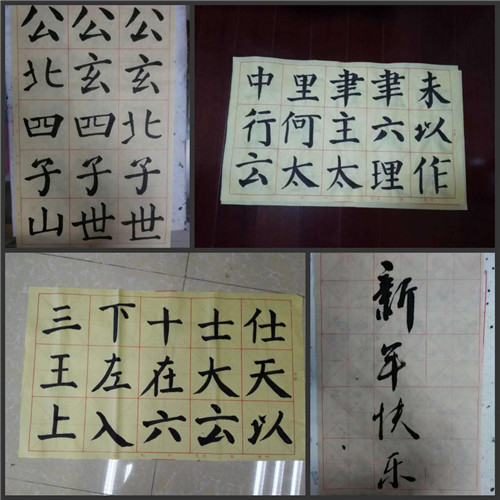 公公公
北玄玄
四四北
子子子
山世世
中里聿聿未
行何主六以
云太太理作
三下十士仕
王左在大天
上入六云以
新年快乐